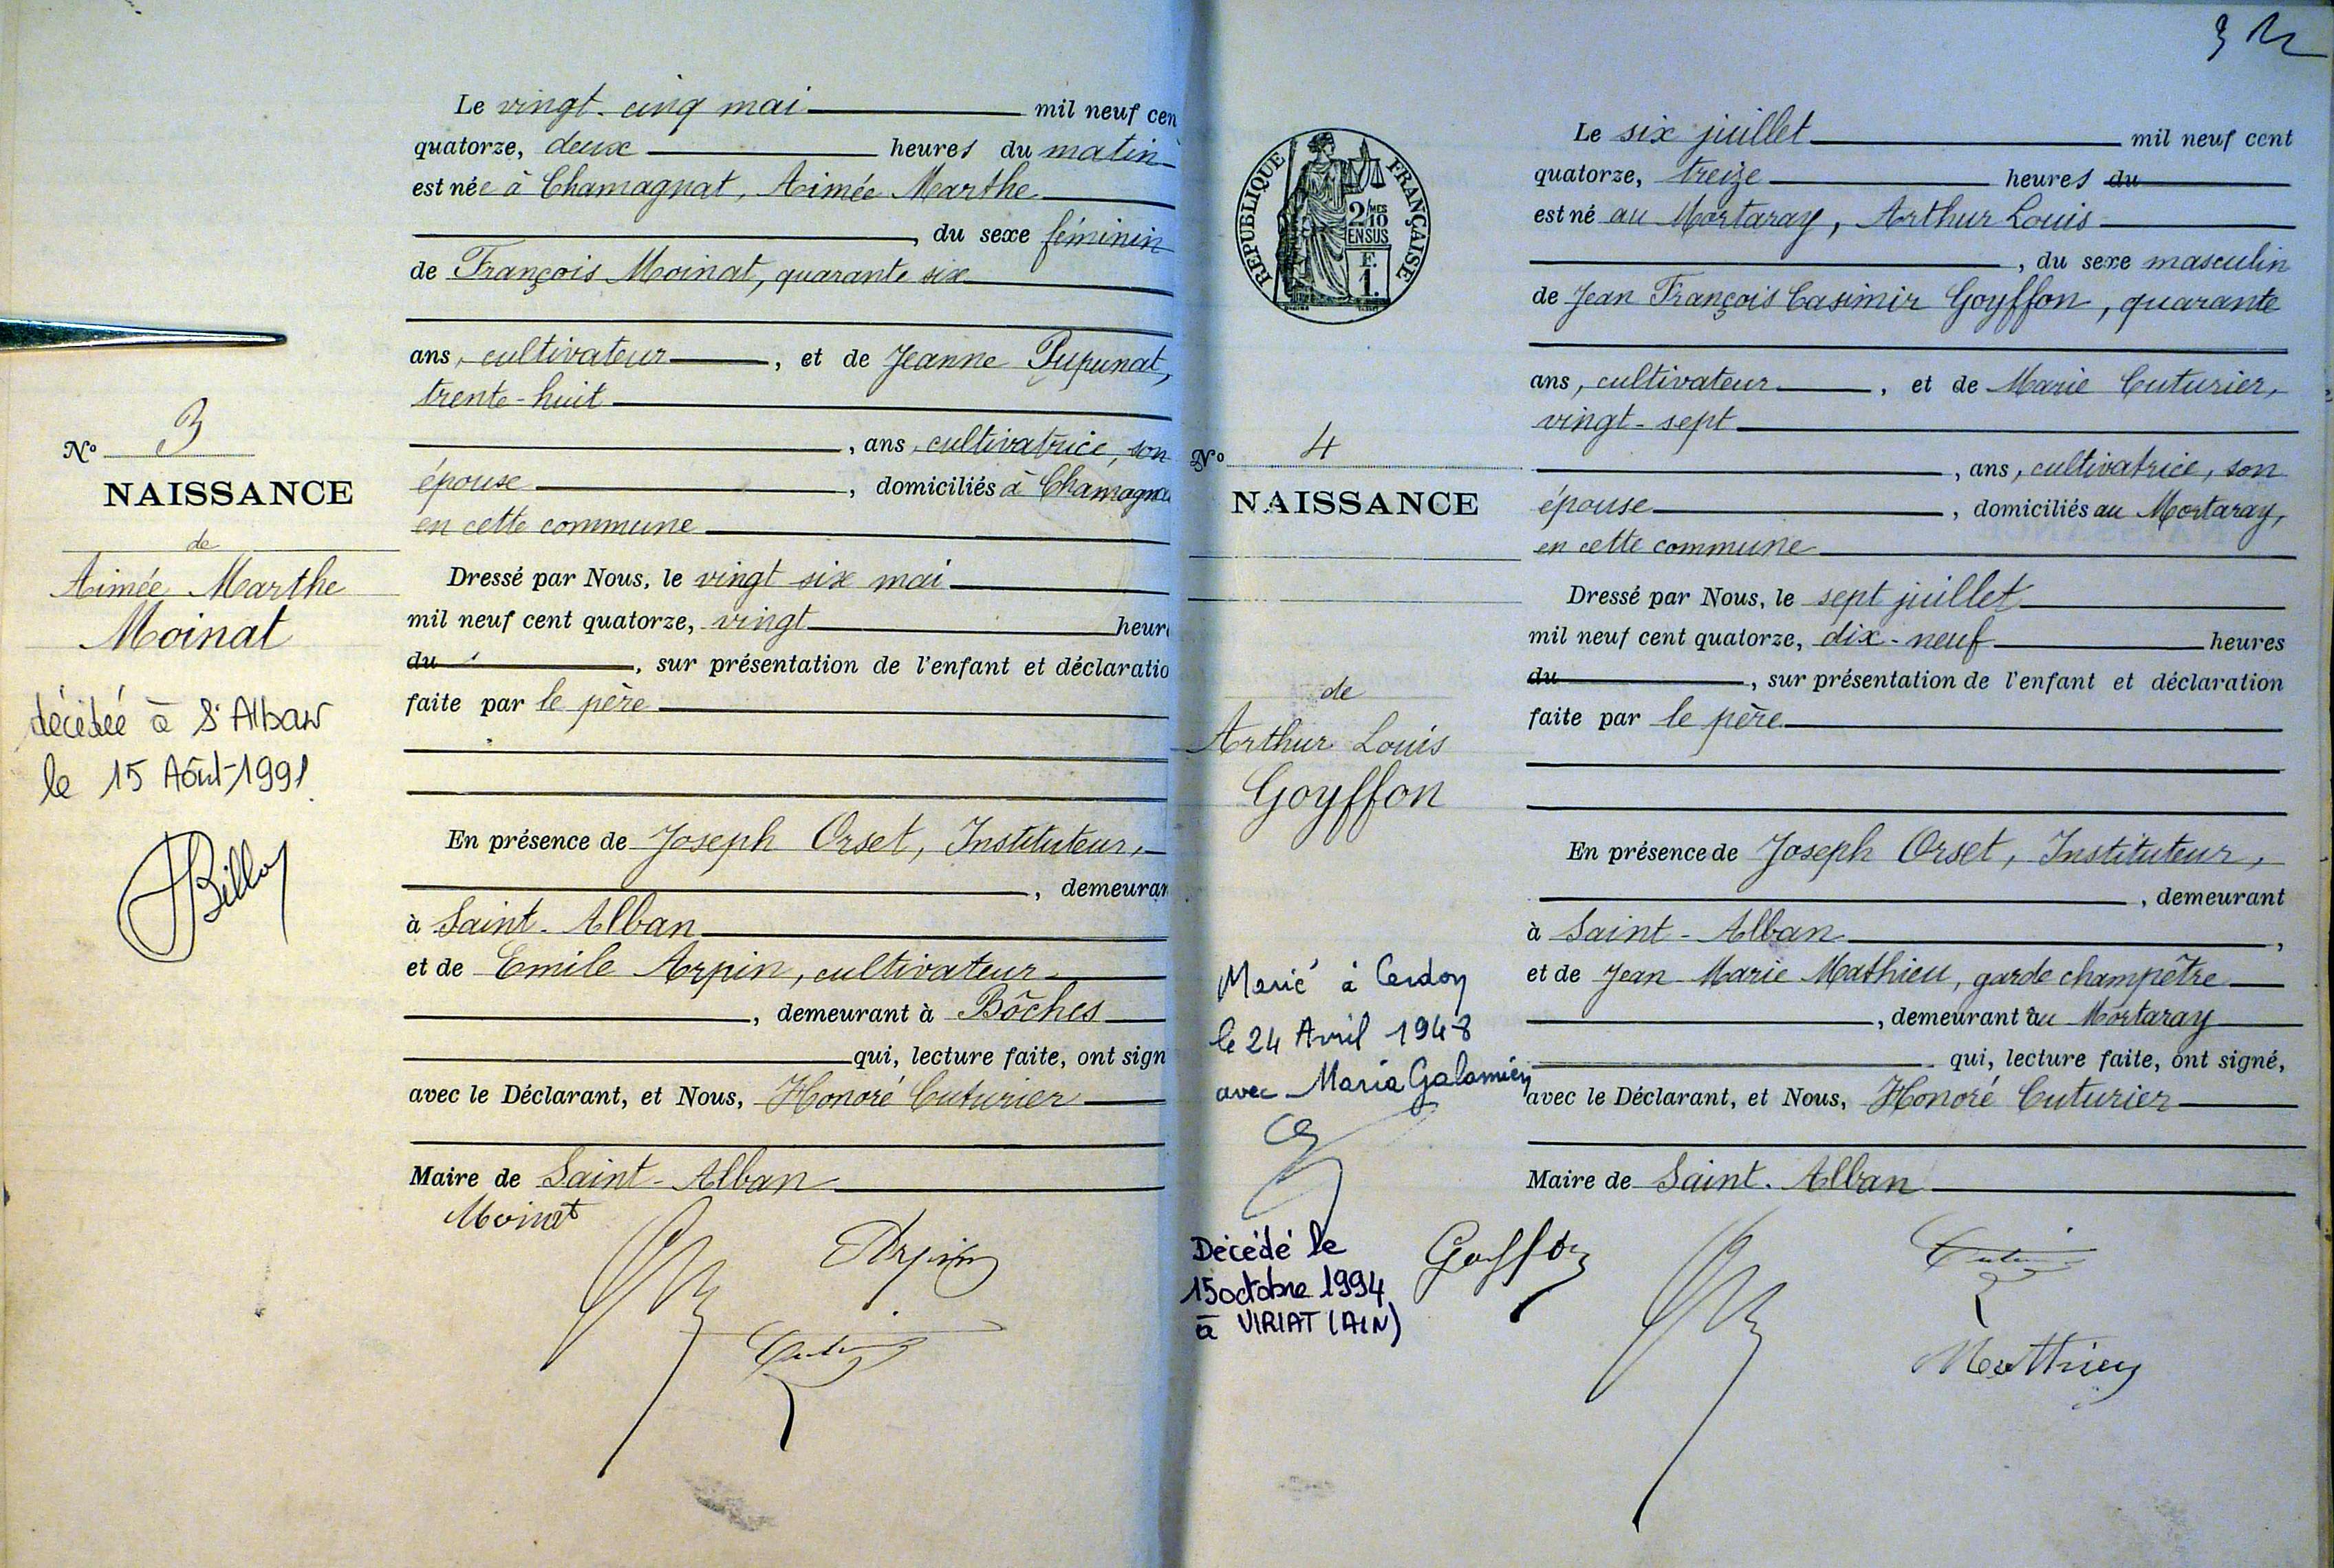 Le vingt-cinq mai mil neuf cen
quatorze, deux heures du matin
est née à Chamagnat, Aimée Marthe
, du sexe féminin
de François Moinat, quarante six
ans, cultivateur, et de Jeanne Pupunat,
trente-huit
, ans, cultivatrice, son
épouse, domiciliés à Chamagna
en cette commune
Dressé par Nous, le vingt six mai
mil neuf cent quatorze, vingt heur
du, sur présentation de l'enfant et déclaratio
faite par le père
En présence de Joseph Orset, Instituteur,
, demeuran
à Saint-Alban
et de Emile Arpin, cultivateur
, demeurant à Bôches
qui, lecture faite, ont sign
avec le Déclarant, et Nous, Honoré Cuturier
Maire de Saint-Alban
Moinat
Arpin
N° 3
NAISSANCE
de
Aimée Marthe
Moinat
décédée à St Alban
le 15 Août-1991
Billoy
Le six juillet mil neuf cent
quatorze, treize heures du
est né au Mortaray, Arthur Louis
, du sexe masculin
de Jean François Casimir Goyffon, quarante
ans, cultivateur, et de Marie Cuturier,
vingt-sept
, ans, cultivatrice, son
épouse, domiciliés au Mortaray,
en cette commune
Dressé par Nous, le sept juillet
mil neuf cent quatorze, dix-neuf heures
du, sur présentation de l'enfant et déclaration
faite par le père
En présence de Joseph Orset, Instituteur,
, demeurant
à Saint-Alban,
et de Jean Marie Mathieu, garde champêtre
, demeurant au Mortaray
qui, lecture faite, ont signé,
avec le Déclarant, et Nous, Honoré Cuturier
Maire de Saint-Alban
Goyffon
Mathieu
RÉPUBLIQUE FRANÇAISE
2/10MES
EN SUS
F.
1.
N° 4
NAISSANCE
de
Arthur Louis
Goyffon
Marié à Cerdon
le 24 Avril 1948
avec Maria Galamien
Décédé le
15 octobre 1994
à VIRIAT (AIN)